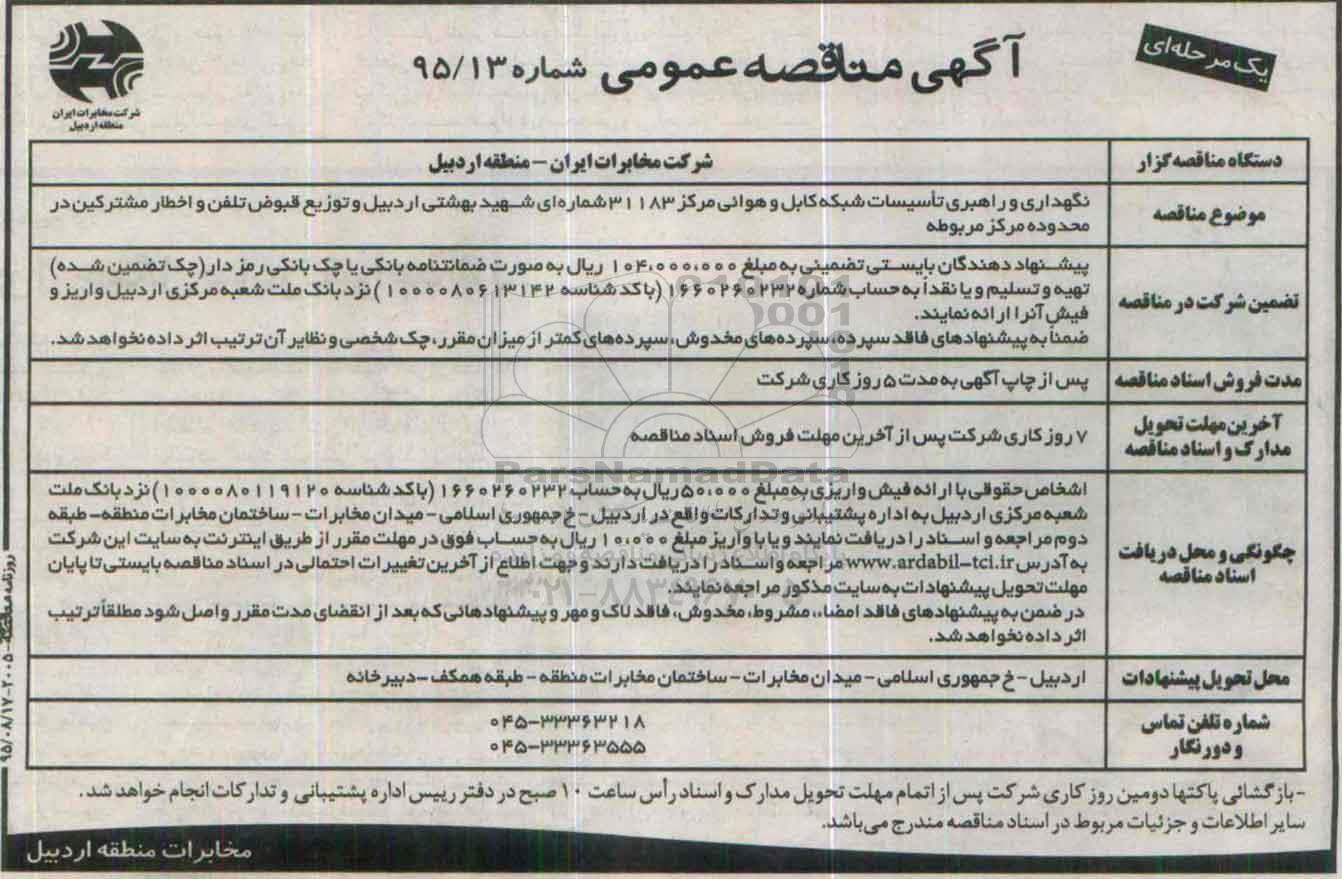 یک مرحله‌ای
آگهی مناقصه عمومی شماره ۹۵/۱۳
شرکت مخابرات ایران
منطقه اردبیل
دستگاه مناقصه گزار
شرکت مخابرات ایران – منطقه اردبیل
موضوع مناقصه
نگهداری و راهبری تأسیسات شبکه کابل و هوائی مرکز ۳۱۱۸۳ شماره‌ای شهید بهشتی اردبیل و توزیع قبوض تلفن و اخطار مشترکین در
محدوده مرکز مربوطه
تضمین شرکت در مناقصه
پیشنهاد دهندگان بایستی تضمینی به مبلغ ۱۰۴،۰۰۰،۰۰۰ ریال به صورت ضمانتنامه بانکی یا چک بانکی رمز دار (چک تضمین شده)
تهیه و تسلیم و یا نقداً به حساب شماره ۱۶۶۰۲۶۰۲۳۲ (با کد شناسه ۱۰۰۰۰۸۰۶۱۳۱۴۲) نزد بانک ملت شعبه مرکزی اردبیل واریز و
فیش آنرا ارائه نمایند.
ضمناً به پیشنهادهای فاقد سپرده، سپرده‌های مخدوش، سپرده‌های کمتر از میزان مقرر، چک شخصی و نظایر آن ترتیب اثر داده نخواهد شد.
مدت فروش اسناد مناقصه
پس از چاپ آگهی به مدت ۵ روز کاری شرکت
آخرین مهلت تحویل
مدارک و اسناد مناقصه
۷ روز کاری شرکت پس از آخرین مهلت فروش اسناد مناقصه
ParsNamadData
چگونگی و محل دریافت
اسناد مناقصه
اشخاص حقوقی با ارائه فیش واریزی به مبلغ ۵۰،۰۰۰ ریال به حساب ۱۶۶۰۲۶۰۲۳۲ (با کد شناسه ۱۰۰۰۰۸۰۱۱۹۱۲۰) نزد بانک ملت
شعبه مرکزی اردبیل به اداره پشتیبانی و تدارکات واقع در اردبیل – خ جمهوری اسلامی – میدان مخابرات – ساختمان مخابرات منطقه – طبقه
دوم مراجعه و اسناد را دریافت نمایند و یا با واریز مبلغ ۱۰،۰۰۰ ریال به حساب فوق در مهلت مقرر از طریق اینترنت به سایت این شرکت
به آدرس www.ardabil-tci.ir مراجعه واسناد را دریافت دارند و جهت اطلاع از آخرین تغییرات احتمالی در اسناد مناقصه بایستی تا پایان
مهلت تحویل پیشنهادات به سایت مذکور مراجعه نمایند.
در ضمن به پیشنهادهای فاقد امضاء، مشروط، مخدوش، فاقد لاک و مهر و پیشنهادهائی که بعد از انقضای مدت مقرر واصل شود مطلقاً ترتیب
اثر داده نخواهد شد.
محل تحویل پیشنهادات
اردبیل – خ جمهوری اسلامی – میدان مخابرات – ساختمان مخابرات منطقه – طبقه همکف – دبیرخانه
شماره تلفن تماس
و دورنگار
۰۴۵–۳۳۳۶۳۲۱۸
۰۴۵–۳۳۳۶۳۵۵۵
– بازگشائی پاکتها دومین روز کاری شرکت پس از اتمام مهلت تحویل مدارک و اسناد رأس ساعت ۱۰ صبح در دفتر رییس اداره پشتیبانی و تدارکات انجام خواهد شد.
سایر اطلاعات و جزئیات مربوط در اسناد مناقصه مندرج می‌باشد.
مخابرات منطقه اردبیل